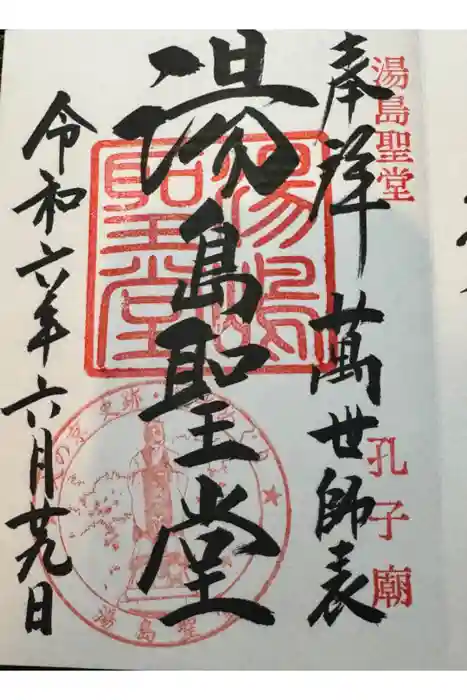 湯島聖堂
孔子廟
奉拝 萬世師表
湯島聖堂
令和六年六月廿九日
湯島
聖堂
史跡・
湯島聖